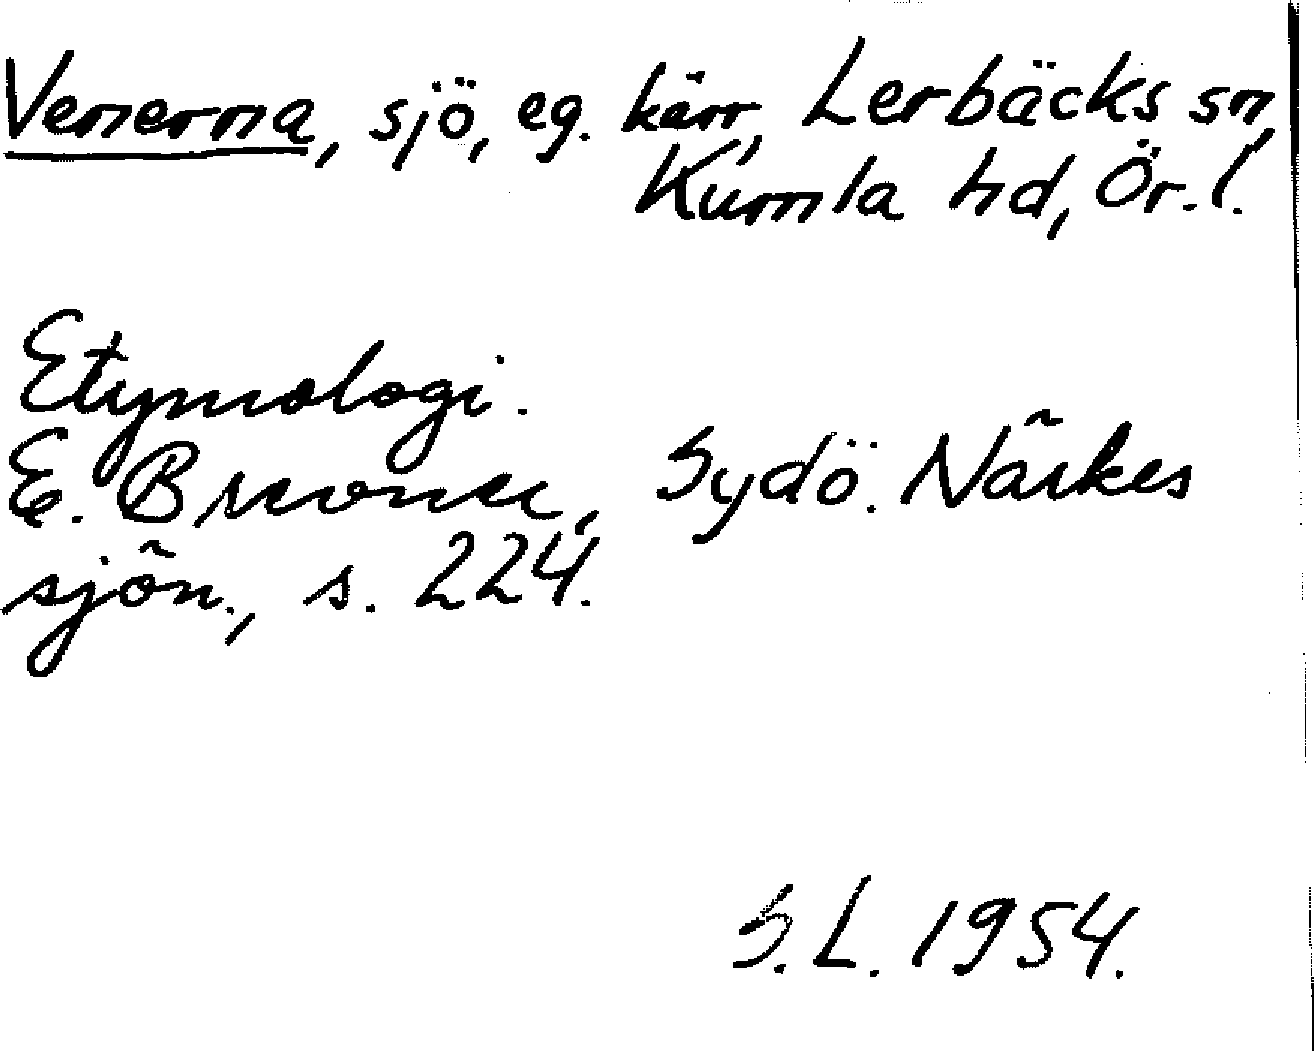 Venerna, sjö, eg. kärr, Lerbäcks sn,
Kumla hd, Ör. l.
Etymologi.
E. Brevner, Sydö. Närkes
sjön., s. 224.
S. L. 1954.